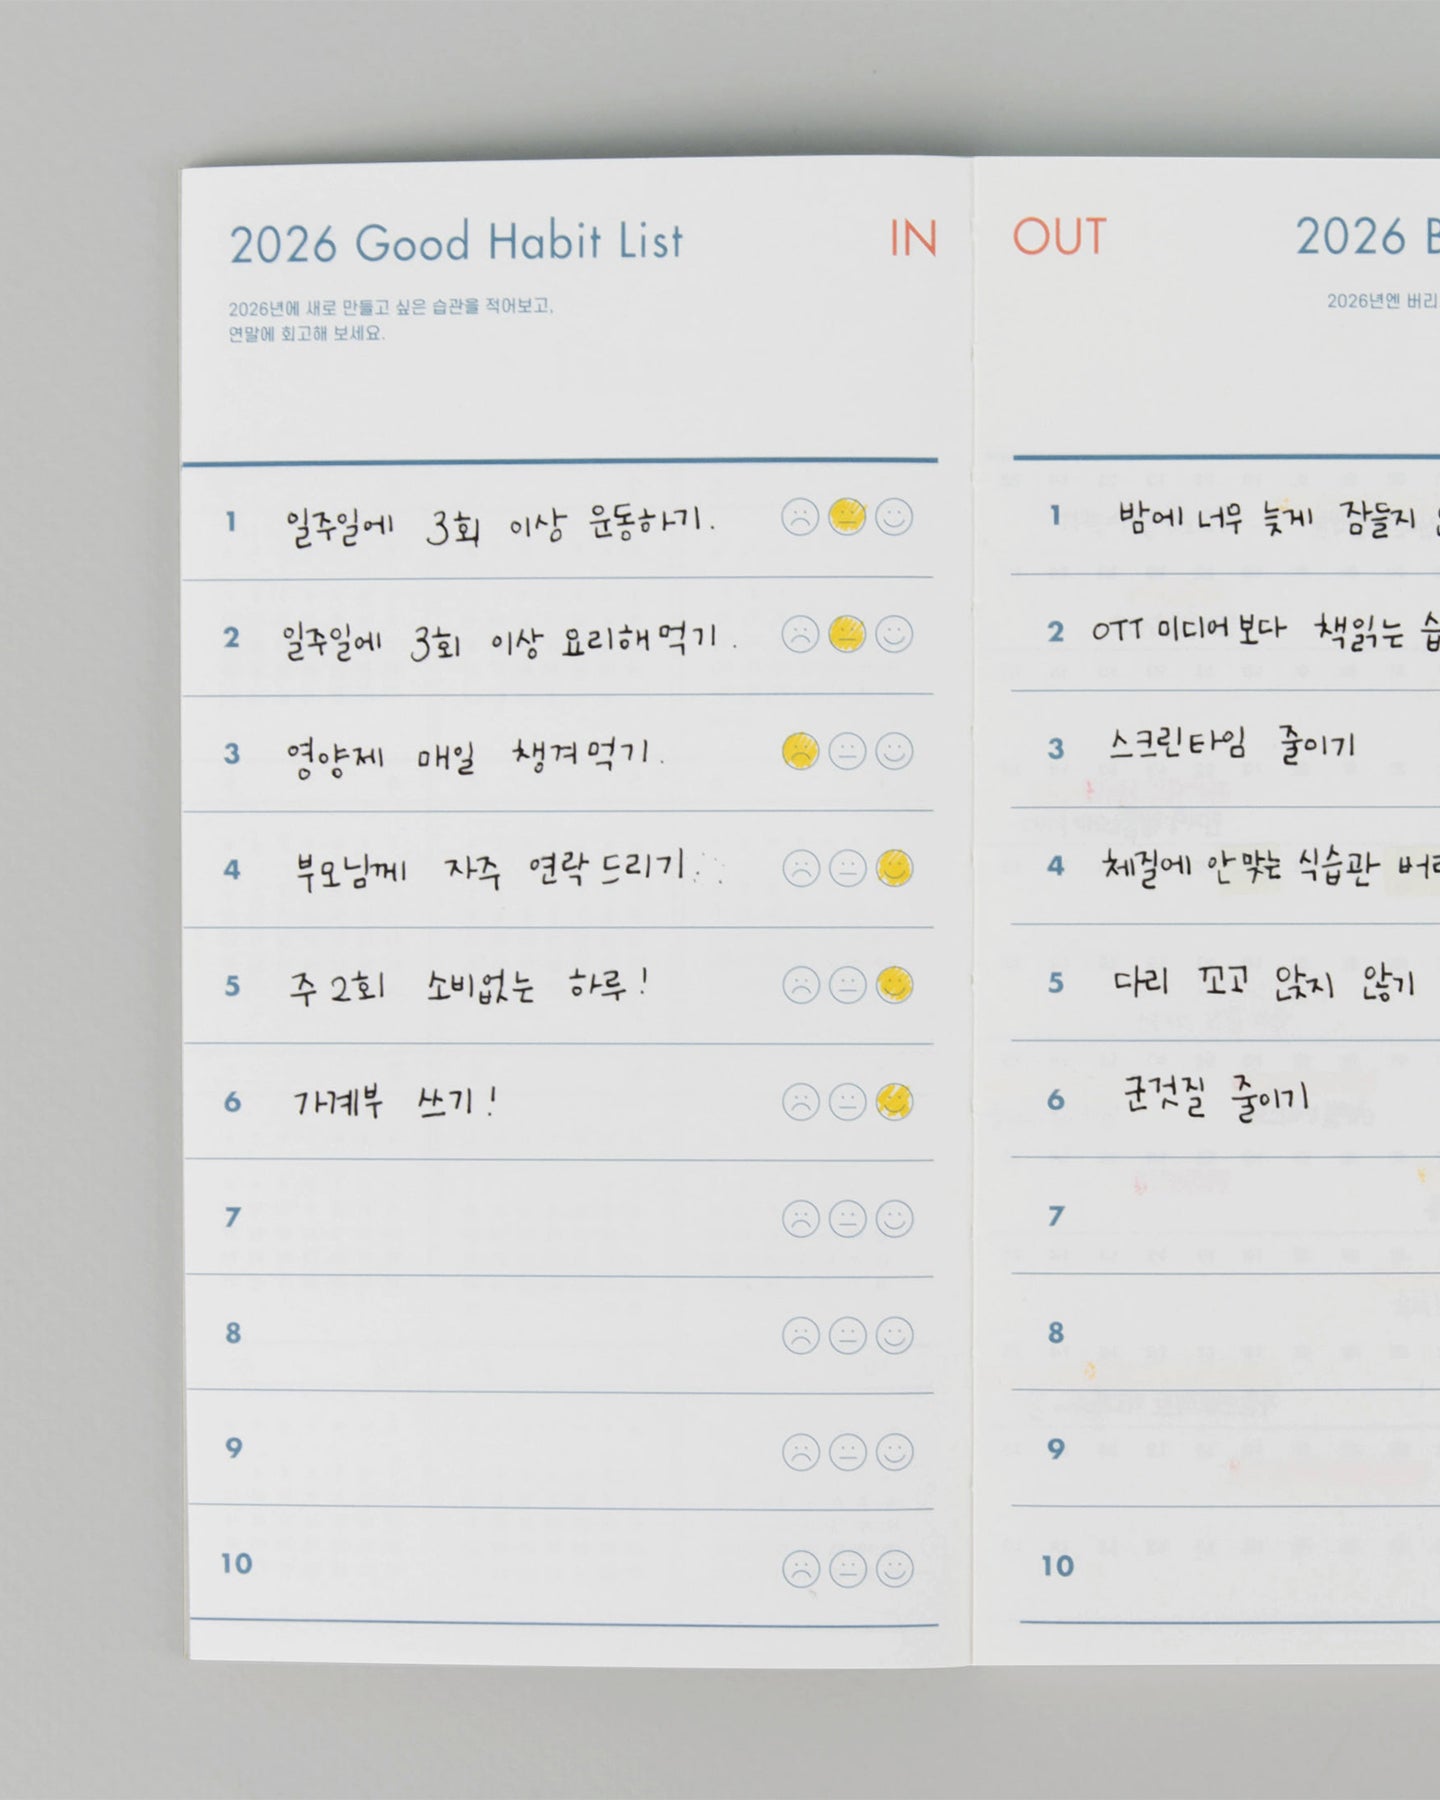 2026 Good Habit List
IN
2026년에 새로 만들고 싶은 습관을 적어보고,
연말에 회고해 보세요.
1 일주일에 3회 이상 운동하기.
2 일주일에 3회 이상 요리해먹기.
3 영양제 매일 챙겨먹기.
4 부모님께 자주 연락드리기.
5 주 2회 소비없는 하루!
6 가계부 쓰기!
7
8
9
10
OUT
2026 B
2026년엔 버리
1 밤에 너무 늦게 잠들지
2 OTT 미디어보다 책읽는 습
3 스크린타임 줄이기
4 체질에 안맞는 식습관 버리
5 다리 꼬고 앉지 않기
6 군것질 줄이기
7
8
9
10